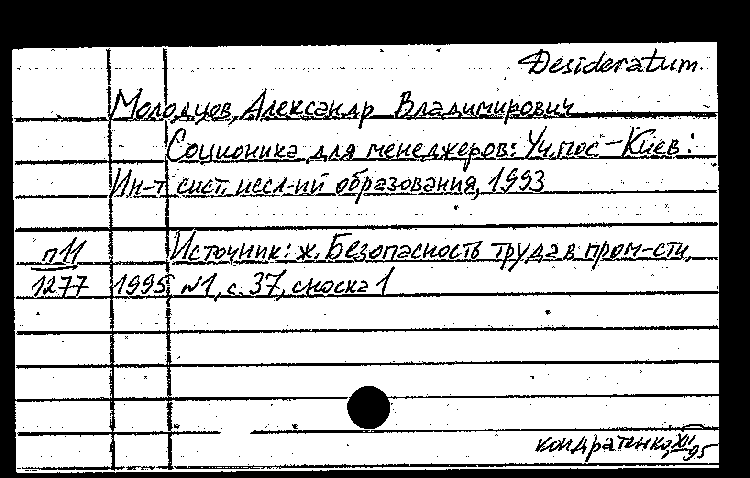 Desideratum.
Молодцов, Александр Владимирович
Соционика для менеджеров: Уч. пос – Киев:
Ин-т сист. иссл-ий образования, 1993
п11 Источник: ж. Безопасность труда в пром-сти,
1277 1995, №1, с. 37, сноска 1
Кондратенко, XI 95